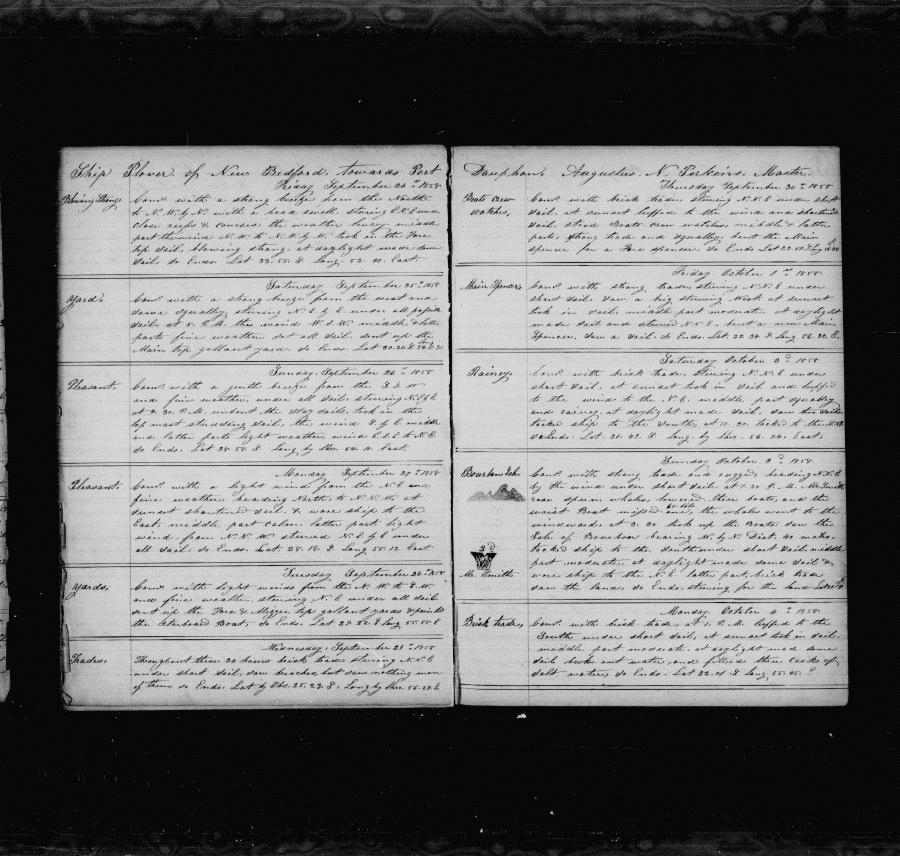 Ship Plover of New Bedford towards Port
Friday September 24th 1858
Blowing Strong
Comd with a strong breeze from the North
to N.W. by N. with a head swell steering E.N.E under
close reefs & courses the weather heavy middle
part the wind N.W. to N.W. by W. took in the Fore
top sail, blowing strong at daylight made some
sail. So Ends. Lat 33.55 S. Long. 53.40. East.
Saturday September 25th 1858
Yard.
Comd with a strong breeze from the west and
some squally steering N.E. by E. under all possible
sail, at 8. P.M. the wind W.S.W. middle & latter
parts fine weather set all sail. sent up the
Main top gallant yard So Ends. Lat 30.30 S
Sunday. September 26th 1858
Pleasant.
Comd with a gentle breeze from the S.S.W
and fine weather, under all sail steering N.E. by E
at P.M. unbent the stay sails, took in the
top mast studding sail, the wind S. by E. middle
and latter parts light weather wind E.S.E. to N.E.
So Ends. Lat 28.58 S Long by Chro. 54. East.
Monday September 27th 1858
Pleasant.
Comd with a light wind from the N.E and
fine weather, heading North, to N.N.W. at
sunset shortened sail & wore ship to the
East. middle part calm. latter part light
wind from N.N.W. steered N.E. by E under
all sail. So Ends. Lat 28.18 S Long 55.12 East
Tuesday September 28th 1858
Yards.
Comd with light winds from the N.W. to S.W.
and fine weather, steering N.E under all sail
sent up the Fore & Mizzen top gallant yards & painted
the Starboard Boat, So Ends. Lat 28.22 S Long 55.55 E
Wednesday. September 29th 1858
Trades.
Throughout these 24 hours brisk trades steering N.N.E
under short sail. saw breaches but saw nothing more
of them So Ends. Lat by Obs. 25.23 S. Long by Chro. 56.28 E
Dauphen, Augustus N. Perkins. Master
Thursday September 30th 1858
Boats crew
watches,
Comd with brisk trades, steering N.N.E under short
sail. at sunset luffed to the wind and shortened
sail stood Boats crew watches, middle & latter
parts strong trade and squally. bent the Main
spencer for a Fore spencer. So Ends Lat 23.
Friday October 1st 1858
Main Spencer.
Comd with strong trades steering N.N.E under
short sail. saw a brig steering West at sunset
took in sail. middle part moderate, at daylight
made sail and steered N.N.E. bent a new Main
Spencer. Saw a sail. So Ends. Lat. 22.34 S Long 56.32 E.
Saturday October 2d 1858
Rainey.
Comd with brisk trade. steering N.N.E under
short sail. at sunset took in sail and luffed
to the wind to the N.E. middle part squally
and rainey, at daylight made sail. saw two sails
tacked ship to the South, at 11.30. tacked to the
So Ends. Lat. 21.42 S Long. by Chro. 56.24. East.
Sunday October 3d 1858
Bourbon Isle
Comd with strong trade and rugged, heading N.N.E
by the wind under short sail. at 1.30 P.M. Mr Smith
rose sperm whales, lowered three boats, and the
60 bbls
waist Boat missed one, the whales went to the
windward. at 3.30 took up the Boats. saw the
Isle of Bourbon bearing N. by W. Dist. 40 miles.
tacked ship to the South under short sail. middle
part moderate, at daylight made some sail &
wore ship to the N.E latter part brisk trade
saw the land, So Ends. steering for the land
W
Mr. Smith
Monday. October 4th 1858
Brisk trades,
Comd with brisk trade, at 1. P.M. luffed to the
South under short sail, at sunset took in sail
middle part moderate, at daylight made some
sail broke out water, and filled three casks of
salt water, So Ends. Lat 22.21 S Long 55.45